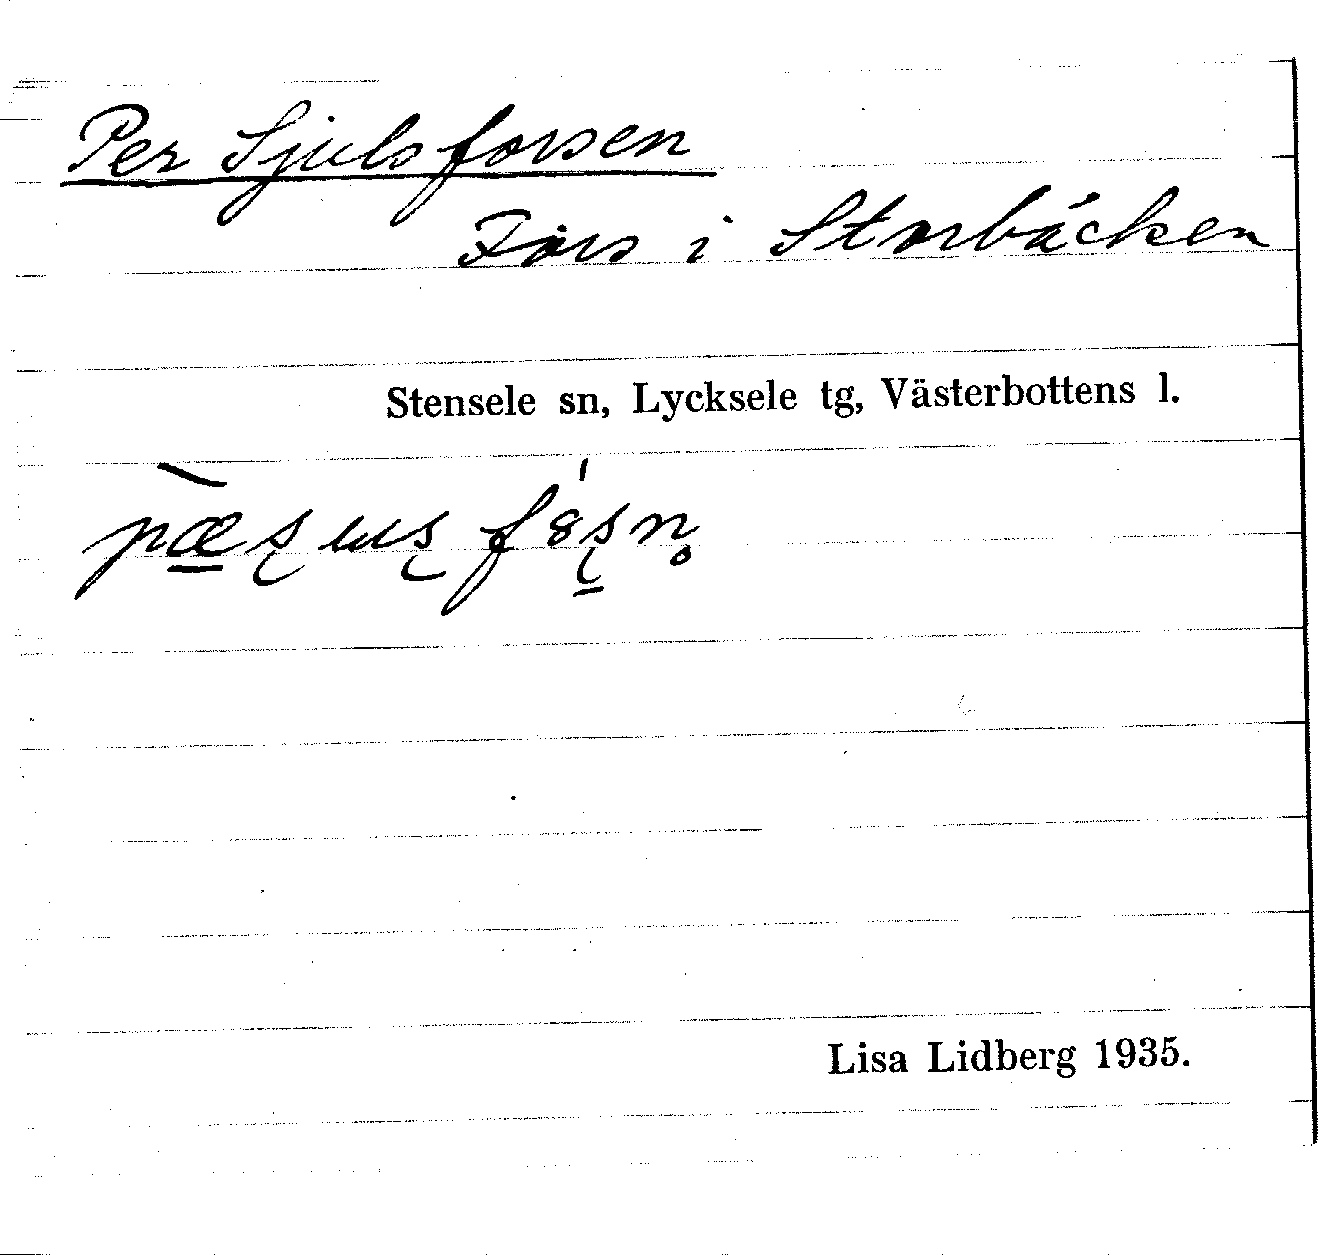 Per Sjulsforsen
Fors i Storbäcken
Stensele sn, Lycksele tg, Västerbottens l.
Lisa Lidberg 1935.